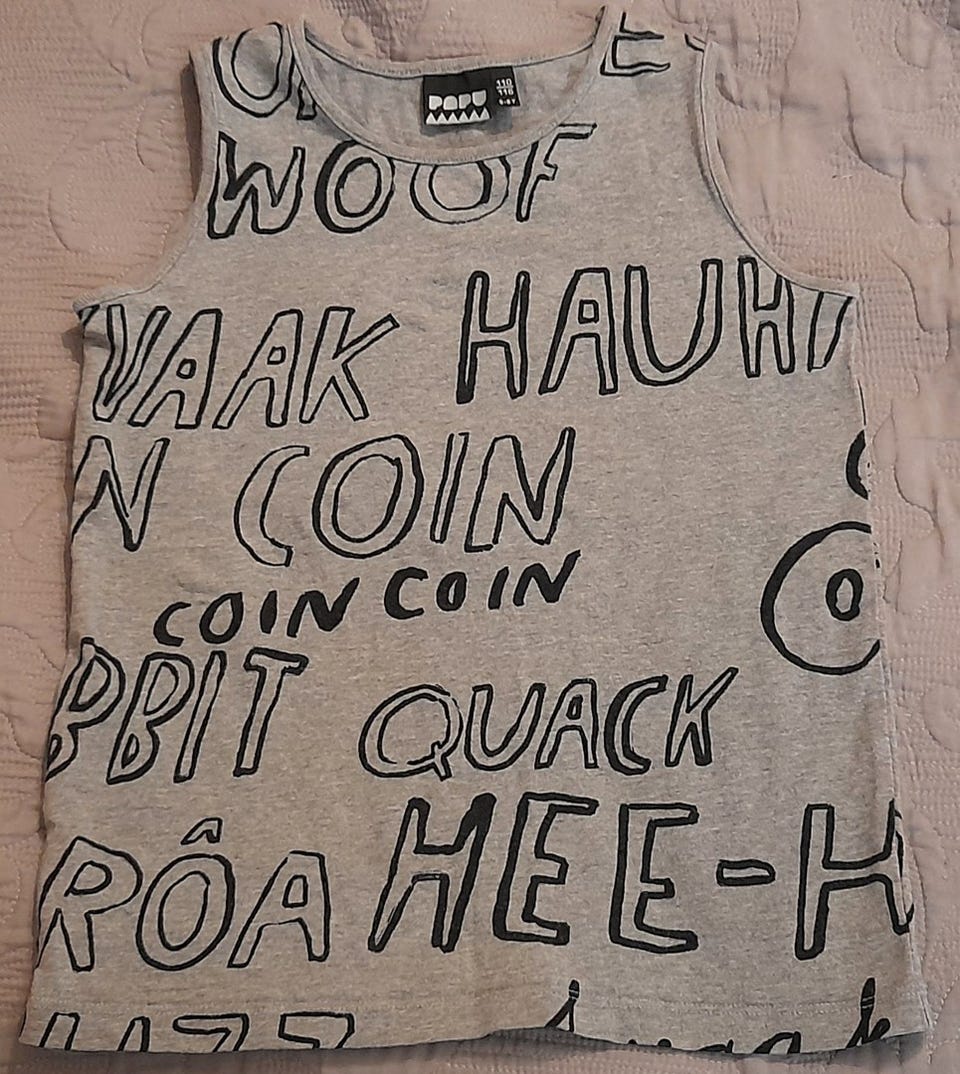 PAPU
110
116
5-6Y
WOOF
VAAK HAUH
N COIN
COIN COIN
BBIT QUACK
RÔA HEE-H
UZZ